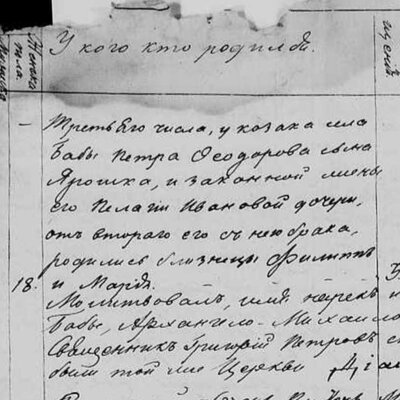 Женска
пола.
У кого кто родился.
щеніе
Третьяго числа, у козака села
Бабы Петра Ѳеодорова сына
Ярошка, и законной жены
его Пелагіи Ивановой дочери,
отъ втораго его съ нею брака,
родились близнецы Филиппъ
18. и Марѳа.
Молитвовалъ, имя нарекъ и
Бабы, Архангело-Михайло
Священникъ Григорій Петровъ
былъ той же Церкви Діа